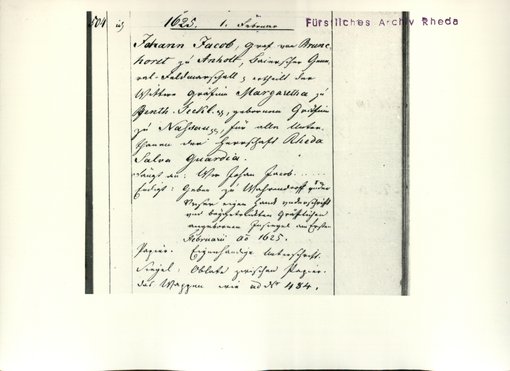 504 1625. 1. Februar Fürstliches Archiv Rheda
Johann Jacob, Graf von Bronc-
horst zu Anholt, baierscher Gene-
ral-Feldmarschall, ertheilt der
Wittwe Gräfin Margaretha zu
Benth. Teckl. geborenen Gräfin
zu Nassau, für alle Unter-
thanen der Herrschaft Rheda
Salva Guardia.
Fängt an: Wir Johan Jacob......
Endigt: Geben zu Wahrendorff under
Unser eigen Hand underschrift
und beygetrucktem Gräflichen
angebornen Insiegel am Ersten
Februarii Ao 1625.
Papier. Eigenhändige Unterschrift.
Siegel: Oblate zwischen Papier.
das Wappen wie ad No 484.